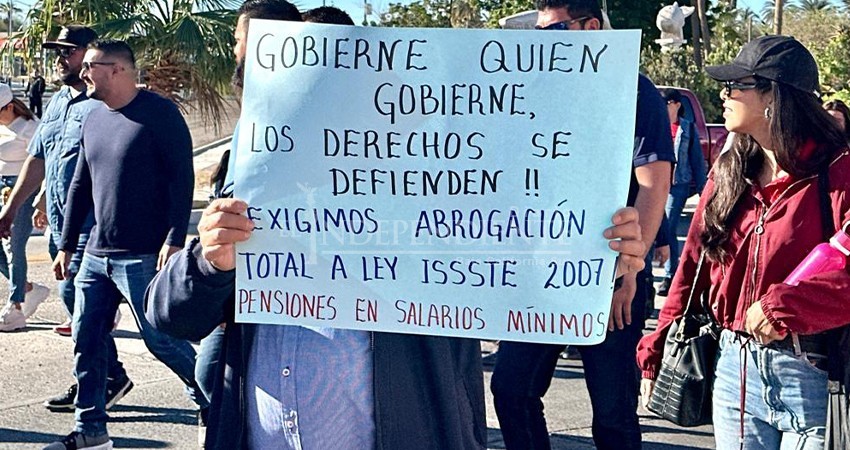 GOBIERNE QUIEN
GOBIERNE,
LOS DERECHOS SE
DEFIENDEN !!
EXIGIMOS ABROGACIÓN
TOTAL A LEY ISSSTE 2007!
PENSIONES EN SALARIOS MÍNIMOS